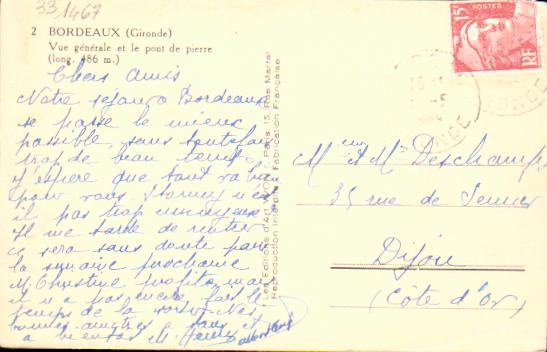 331467
2 BORDEAUX (Gironde)
Vue générale et le pont de pierre
(long. 486 m.)
Chers amis
Notre séjour à Bordeaux
se passe le mieux
possible, sans toutefois
trop de beau temps.
J'espère que tout va bien
pour vous.
il pas trop ennuyeux
Il me tarde de rentrer
ce sera sans doute pour
la semaine prochaine.
M. Christine profite mais
il n'a pas encore fait le
temps de la sortir. Nos
bonnes amitiés à tous et
à bientôt M.
Les Editions d'Art "YVON" - Paris, 15, Rue Martel
Reproduction Interdite - Fabrication Française
15F POSTES
RF
GIRONDE
Mr et Mme Deschamps
35 rue de
Dijon
(Côte d'Or)